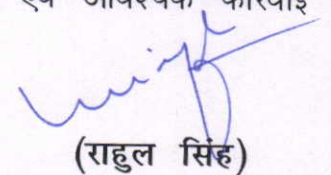 एवं आवश्यक कार्रवाई
(राहुल सिंह)